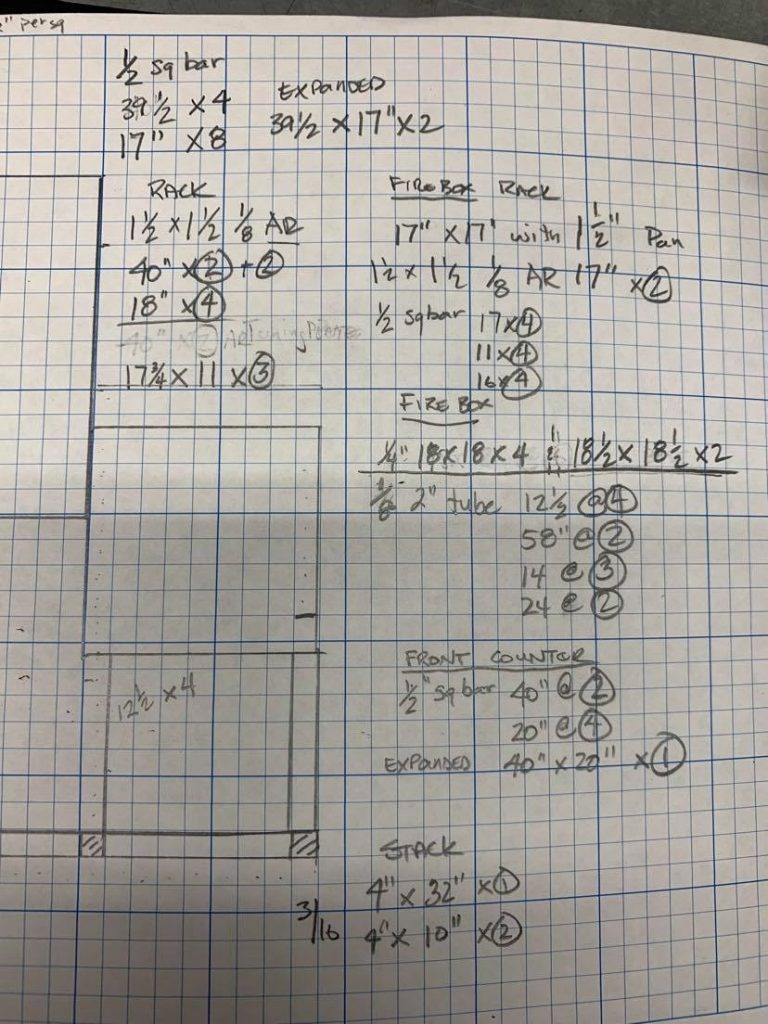 " per sq
1/2 sq bar
39 1/2 x 4
17" x 8
EXPANDED
39 1/2 x 17" x 2
RACK
1 1/2 x 1 1/2 1/8 AR
40" x 2 + 2
18" x 4
40"
17 3/4 x 11 x 3
FIREBOX RACK
17" x 17" with 1 1/2" Pan
1 1/2 x 1 1/2 1/8 AR 17" x 2
1/2 sq bar 17 x 4
11 x 4
16 x 4
FIRE BOX
1/4" 18 x 18 x 4 18 1/2 x 18 1/2 x 2
1/8" 2" tube 12 1/2 @ 4
58" @ 2
14 @ 3
24 @ 2
12 1/2 x 4
FRONT COUNTER
1/2" sq bar 40" @ 2
20" @ 4
EXPANDED 40" x 20" x 1
STACK
4" x 32" x 1
3/16 4" x 10" x 2